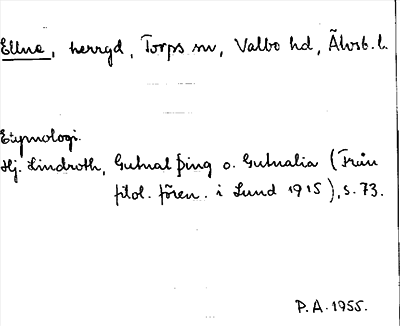 Ellne, herrgd, Torps sn, Valbo hd, Älvsb. l.
Etymologi.
Hj. Lindroth, Gutnal þing o. Gutnalia (Från
filol. fören. i Lund 1915), s. 73.
P.A. 1955.